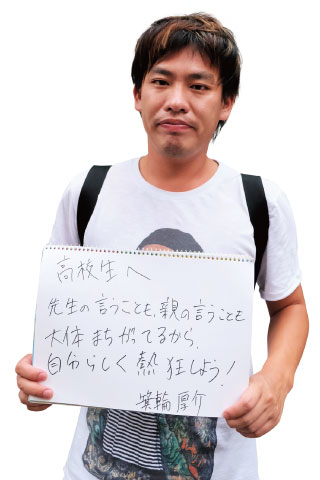 高校生へ
先生の言うことも、親の言うことも
大体まちがってるから、
自分らしく熱狂しよう！
箕輪厚介